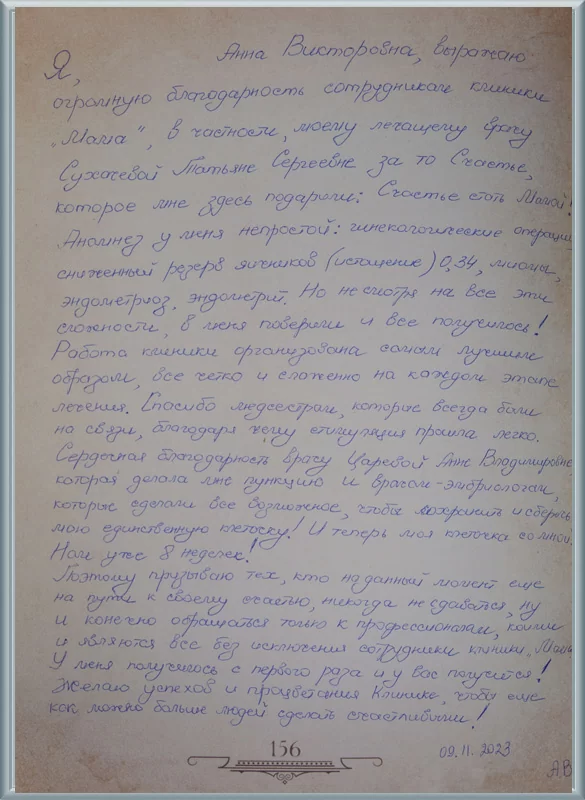 Я, Анна Викторовна, выражаю
огромную благодарность сотрудникам клиники
„Мама“, в частности, моему лечащему врачу
Сухачевой Татьяне Сергеевне за то Счастье,
которое мне здесь подарили: Счастье стать Мамой!
Анамнез у меня непростой: гинекологические операции,
сниженный резерв яичников (истощение) 0,34, миома,
эндометриоз, эндометрит. Но несмотря на все эти
сложности, в меня поверили и все получилось!
Работа клиники организована самым лучшим
образом, все четко и слаженно на каждом этапе
лечения. Спасибо медсестрам, которые всегда были
на связи, благодаря чему стимуляция прошла легко.
Сердечная благодарность врачу Царевой Анне Владимировне
которая делала мне пункцию и врачам-эмбриологам,
которые сделали все возможное, чтобы сохранить и сберечь
мою единственную клеточку! И теперь моя клеточка со мной.
Нам уже 8 недель!
Поэтому призываю тех, кто на данный момент еще
на пути к своему счастью, никогда не сдаваться, ну
и конечно обращаться только к профессионалам, коими
и являются все без исключения сотрудники клиники „Мама
У меня получилось с первого раза и у вас получится!
Желаю успехов и процветания Клинике, чтобы еще
как можно больше людей сделать счастливыми!
156
09.11.2023
АВ